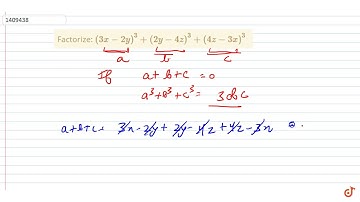 1409438
Factorize: (3x − 2y)³ + (2y − 4z)³ + (4z − 3x)³
a b c
If a + b + c = 0
a³ + b³ + c³ = 3abc
a+b+c = 3x − 2y + 2y − 4z + 4z − 3x
doubtnut